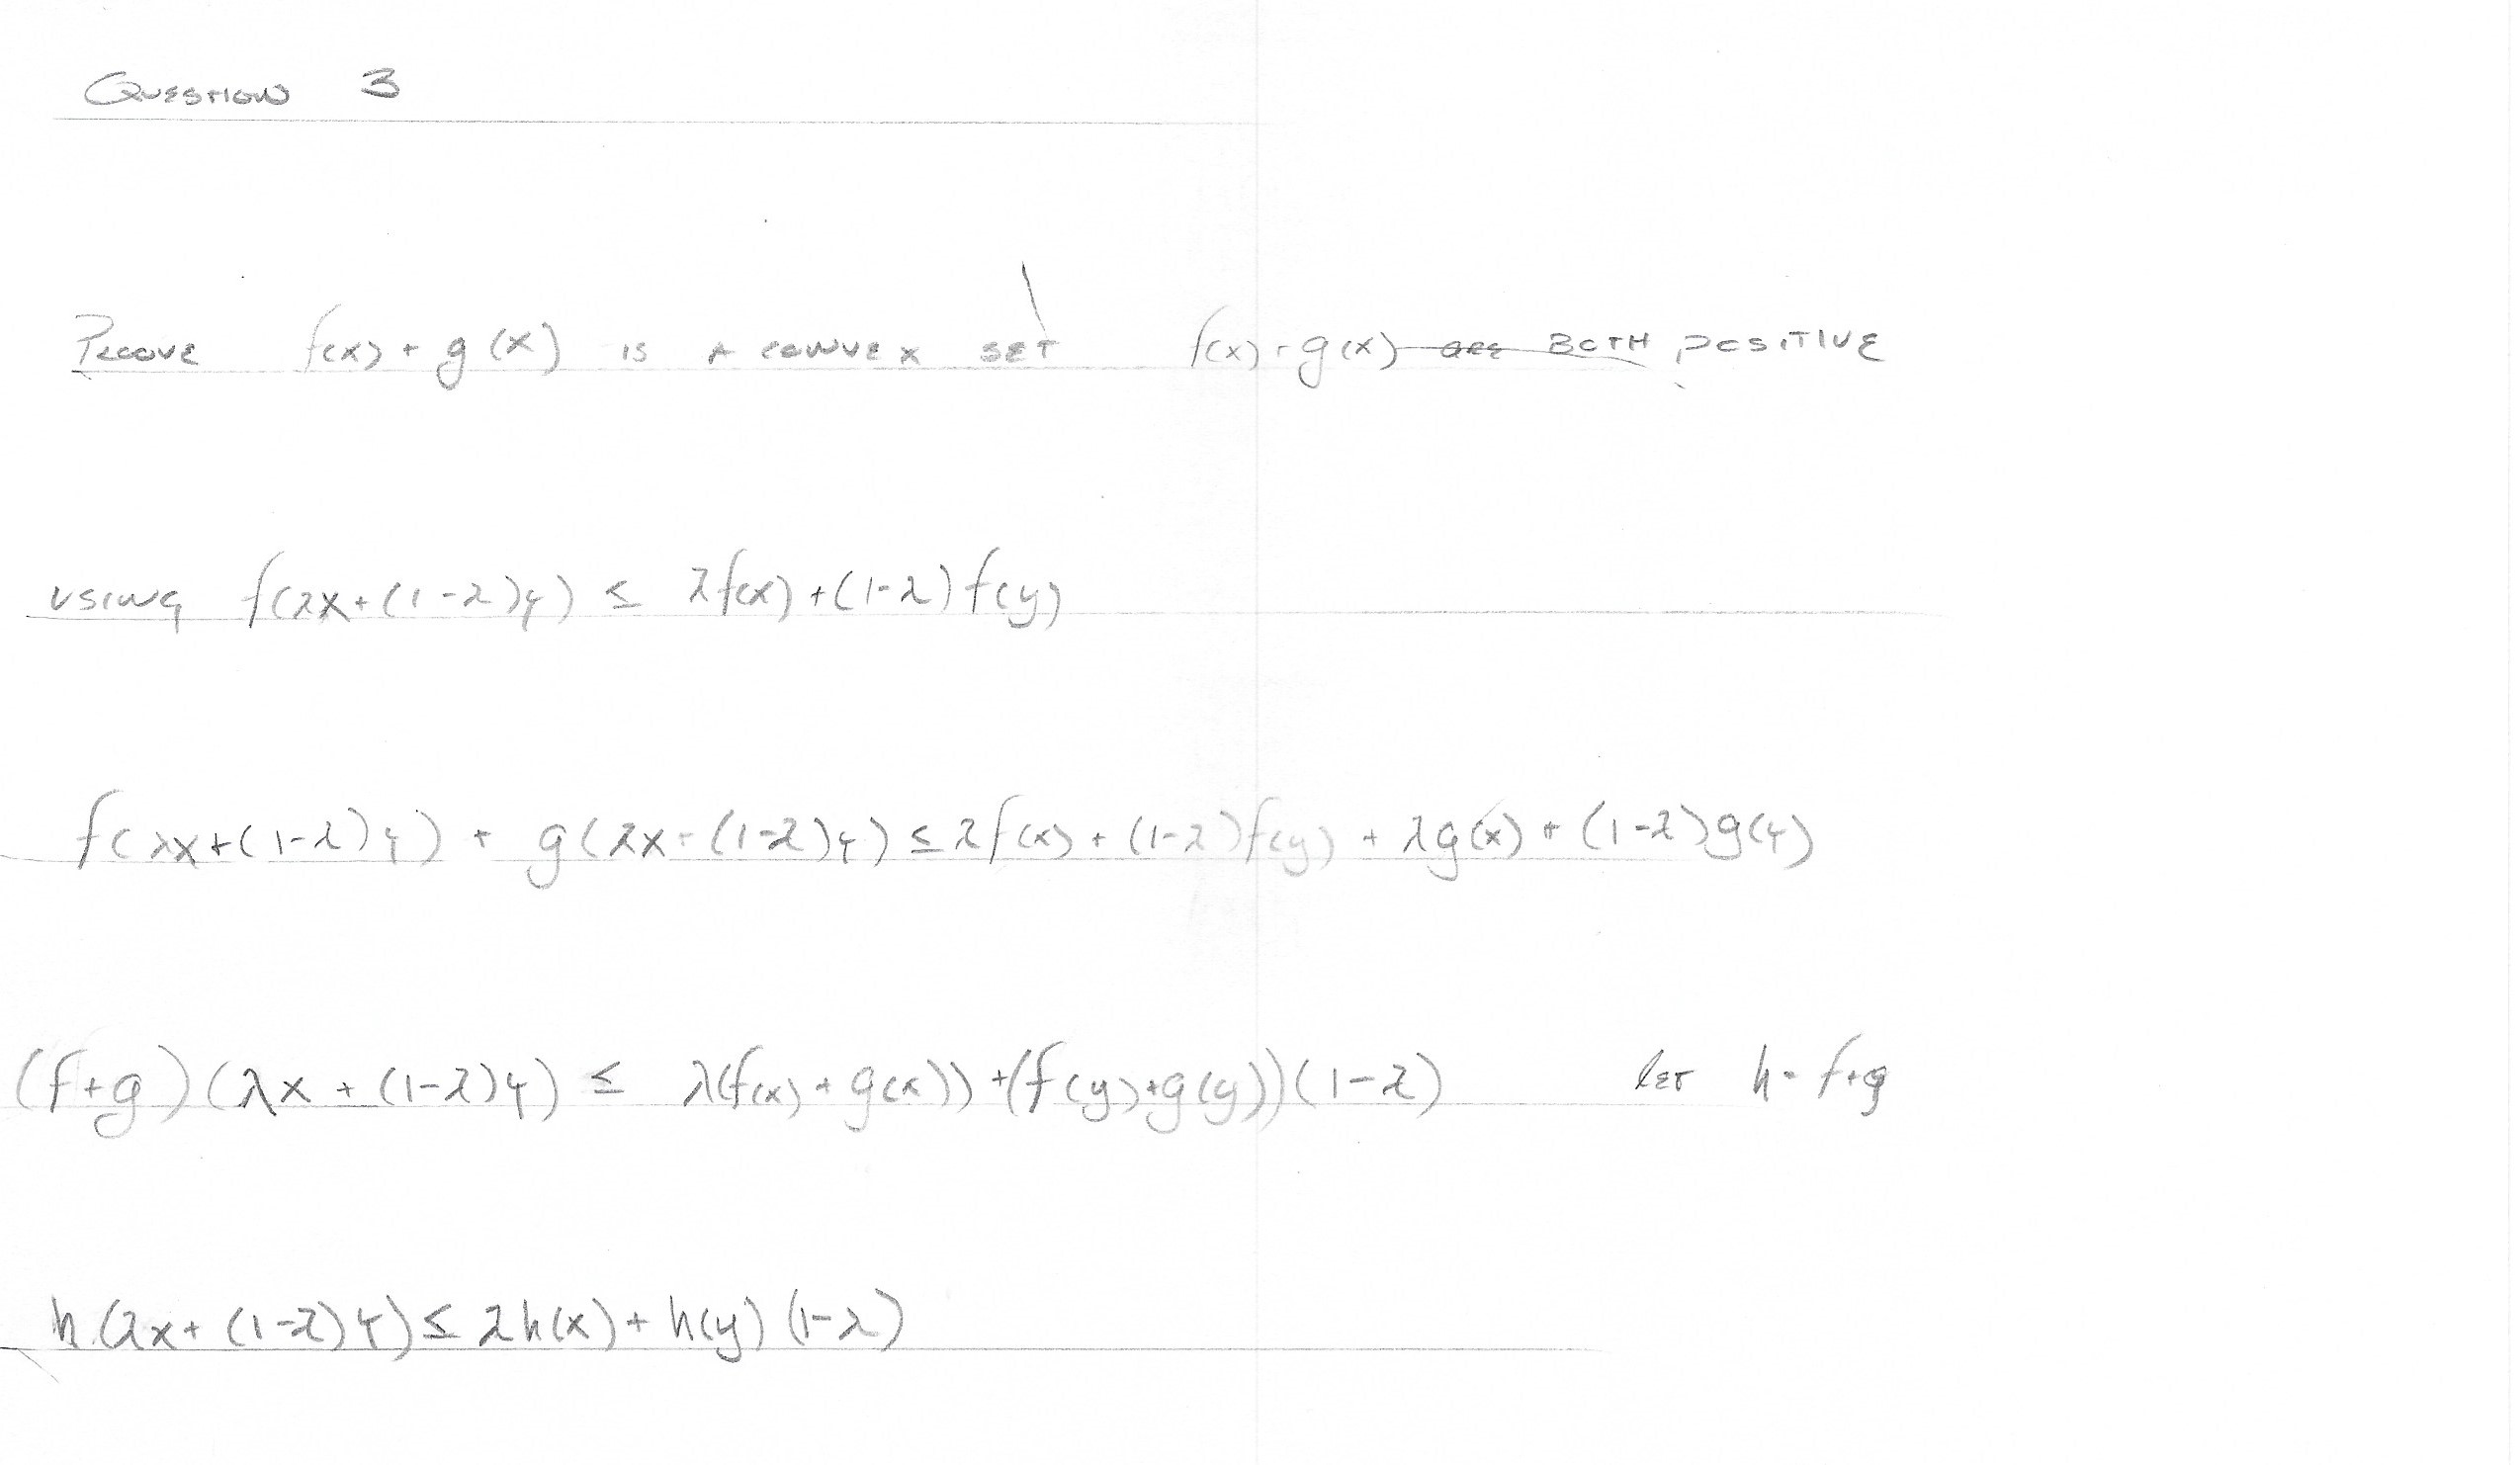 QUESTION 3
PROOVE f(x) + g(x) IS A CONVEX SET f(x) + g(x) ARE BOTH POSITIVE
USING f(λx+(1-λ)y) ≤ λf(x)+(1-λ)f(y)
f(λx+(1-λ)y) + g(λx+(1-λ)y) ≤ λf(x) + (1-λ)f(y) + λg(x) + (1-λ)g(y)
(f+g)(λx + (1-λ)y) ≤ λ(f(x)+g(x)) + (f(y)+g(y))(1-λ) let h = f+g
h(λx + (1-λ)y) ≤ λh(x) + h(y)(1-λ)